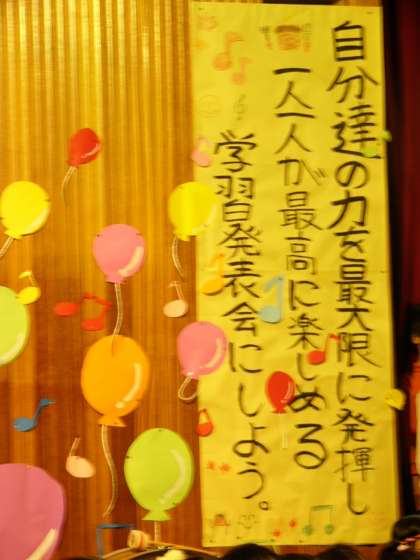 自分達の力を最大限に発揮し
一人一人が最高に楽しめる
学習発表会にしよう。